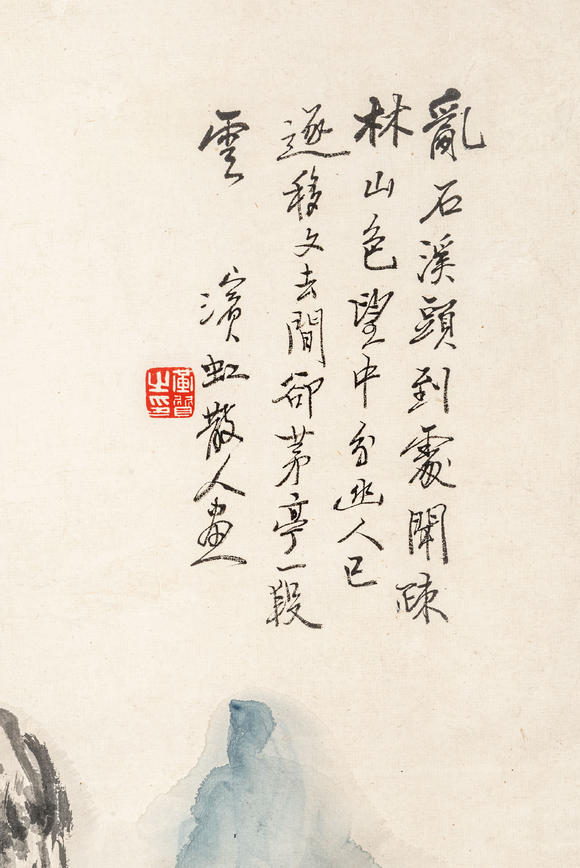 亂石溪頭到處聞疎
林山色望中分幽人已
遂移文去間卻茅亭一段
雲 濱虹散人畫
黃質之印